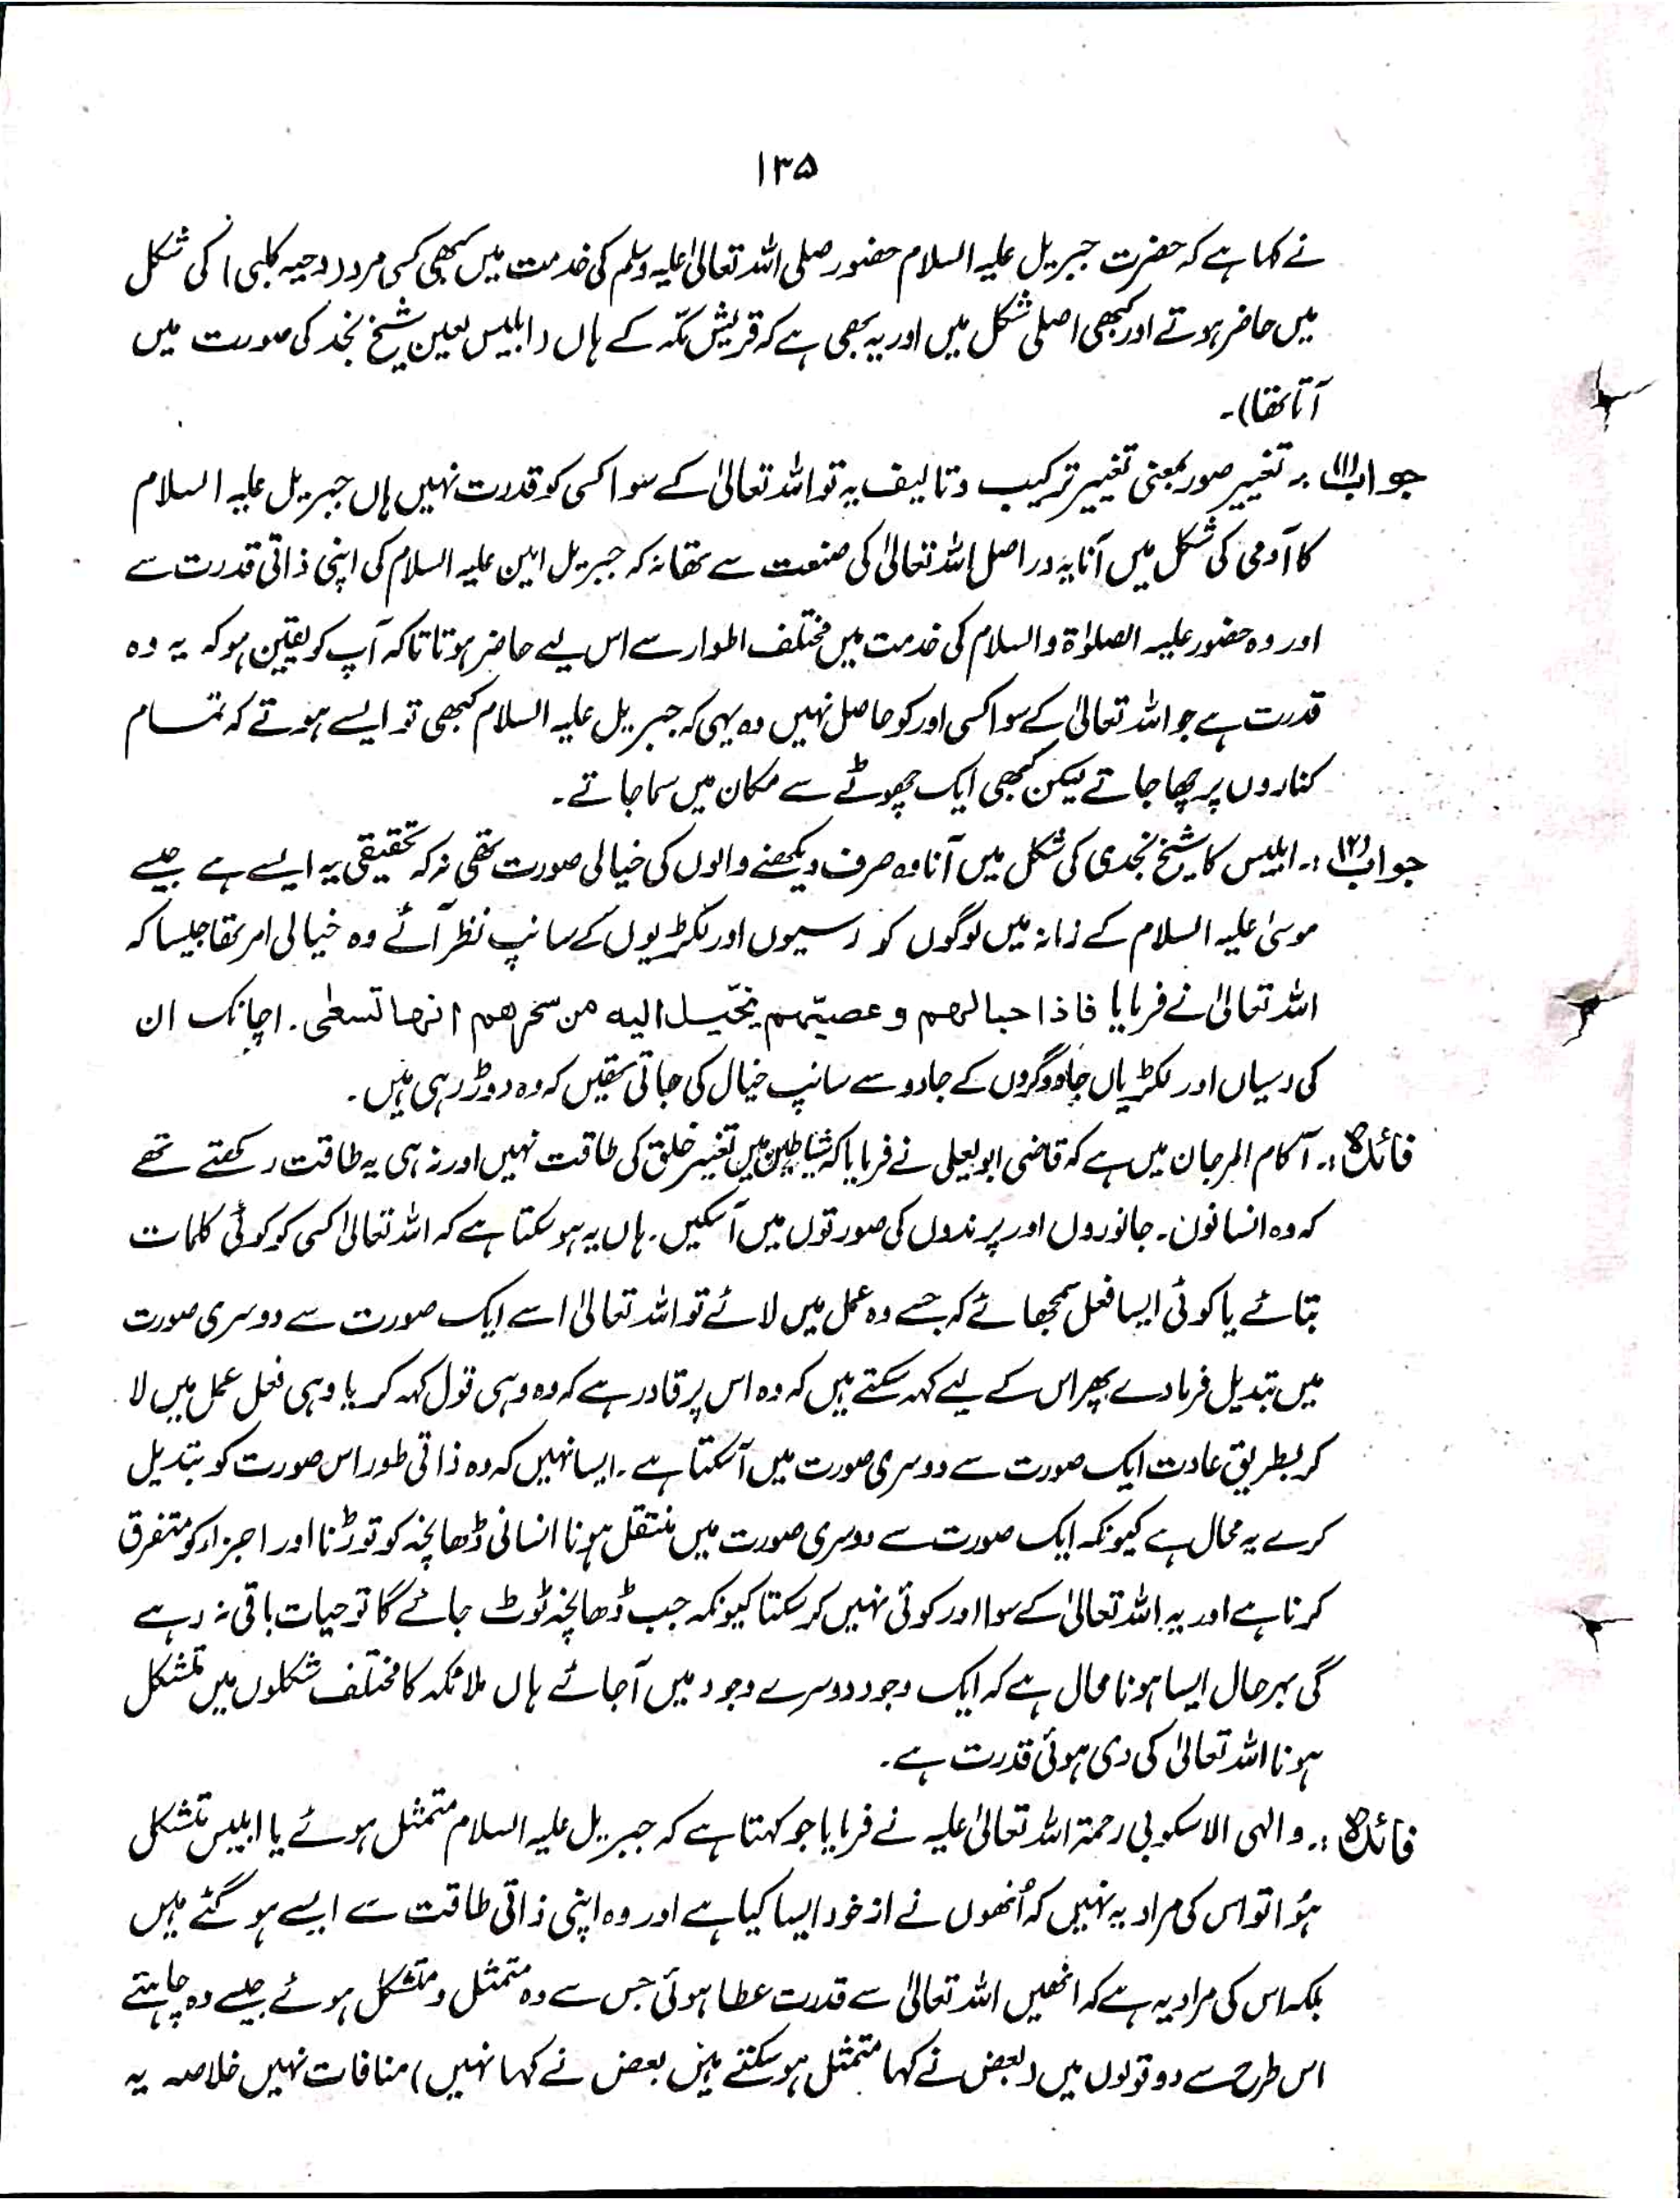 ۱۳۵
نے کہا ہے کہ حضرت جبریل علیہ السلام حضور صلی اللہ تعالیٰ علیہ وسلم کی خدمت میں کبھی کسی مرد (دحیہ کلبی) کی شکل
میں حاضر ہوتے اور کبھی اصلی شکل میں اور یہ بھی ہے کہ قریش مکّہ کے ہاں (ابلیس لعین شیخ نجد کی صورت میں
آتا تھا)۔
جواب (۱) :۔ تغییر صور بمعنی تغییر ترکیب و تالیف یہ تو اللہ تعالیٰ کے سوا کسی کو قدرت نہیں ہاں جبریل علیہ السلام
کا آدمی کی شکل میں آنا یہ دراصل اللہ تعالیٰ کی صنعت سے تھا نہ کہ جبریل امین علیہ السلام کی اپنی ذاتی قدرت سے
اور وہ حضور علیہ الصلوٰۃ والسلام کی خدمت میں مختلف اطوار سے اس لیے حاضر ہوتا تاکہ آپ کو یقین ہو کہ یہ وہ
قدرت ہے جو اللہ تعالیٰ کے سوا کسی اور کو حاصل نہیں وہ یہی کہ جبریل علیہ السلام کبھی تو ایسے ہوتے کہ تمام
کناروں پر چھا جاتے لیکن کبھی ایک چھوٹے سے مکان میں سما جاتے۔
جواب (۲) :۔ ابلیس کا شیخ نجدی کی شکل میں آنا وہ صرف دیکھنے والوں کی خیالی صورت تھی نہ کہ تحقیقی یہ ایسے ہے جیسے
موسیٰ علیہ السلام کے زمانہ میں لوگوں کو رسیوں اور لکڑیوں کے سانپ نظر آئے وہ خیالی امر تھا جیسا کہ
اللہ تعالیٰ نے فرمایا فاذا حبالہم و عصیّہم یخیّل الیہ من سحرھم انھا تسعٰی۔ اچانک ان
کی رسیاں اور لکڑیاں جادوگروں کے جادو سے سانپ خیال کی جاتی تھیں کہ وہ دوڑ رہی ہیں۔
فائدہ :۔ آکام المرجان میں ہے کہ قاضی ابو یعلی نے فرمایا کہ شیاطین میں تغییر خلق کی طاقت نہیں اور نہ ہی یہ طاقت رکھتے تھے
کہ وہ انسانوں۔ جانوروں اور پرندوں کی صورتوں میں آسکیں۔ ہاں یہ ہو سکتا ہے کہ اللہ تعالیٰ کسی کو کوئی کلمات
بتائے یا کوئی ایسا فعل سمجھائے کہ جسے وہ عمل میں لائے تو اللہ تعالیٰ اسے ایک صورت سے دوسری صورت
میں تبدیل فرما دے پھر اس کے لیے کہہ سکتے ہیں کہ وہ اس پر قادر ہے کہ وہ وہی قول کہہ کر یا وہی فعل عمل میں لا
کر بطریق عادت ایک صورت سے دوسری صورت میں آسکتا ہے۔ ایسا نہیں کہ وہ ذاتی طور اس صورت کو تبدیل
کرے یہ محال ہے کیونکہ ایک صورت سے دوسری صورت میں منتقل ہونا انسانی ڈھانچہ کو توڑنا اور اجزاء کو متفرق
کرنا ہے اور یہ اللہ تعالیٰ کے سوا اور کوئی نہیں کر سکتا کیونکہ جب ڈھانچہ ٹوٹ جائے گا تو حیات باقی نہ رہے
گی بہرحال ایسا ہونا محال ہے کہ ایک وجود دوسرے وجود میں آجائے ہاں ملائکہ کا مختلف شکلوں میں متشکل
ہونا اللہ تعالیٰ کی دی ہوئی قدرت ہے۔
فائدہ :۔ والہی الاسکوبی رحمۃ اللہ تعالیٰ علیہ نے فرمایا جو کہتا ہے کہ جبریل علیہ السلام متمثل ہوئے یا ابلیس متشکل
ہُوا تو اس کی مراد یہ نہیں کہ اُنھوں نے از خود ایسا کیا ہے اور وہ اپنی ذاتی طاقت سے ایسے ہو گئے ہیں
بلکہ اس کی مراد یہ ہے کہ انھیں اللہ تعالیٰ سے قدرت عطا ہوئی جس سے وہ متمثل و متشکل ہوئے جیسے وہ چاہتے
اس طرح سے دو قولوں میں (بعض نے کہا متمثل ہو سکتے ہیں بعض نے کہا نہیں) منافات نہیں خلاصہ یہ